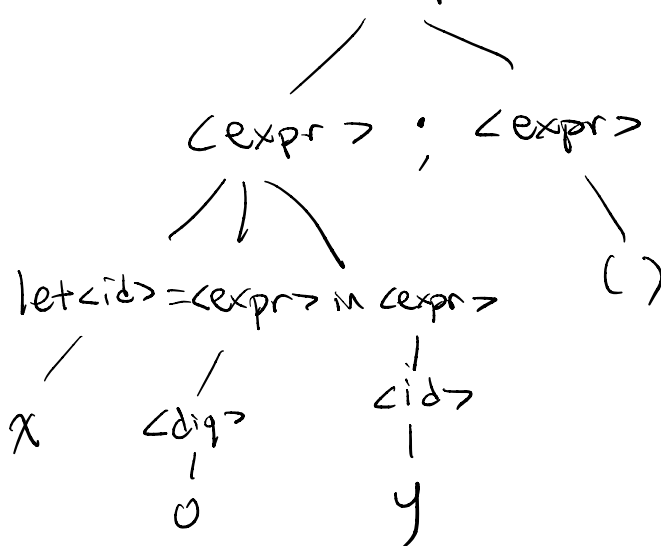 <expr> ; <expr>
let <id> = <expr> in <expr>
( )
x
<dig>
<id>
0
y